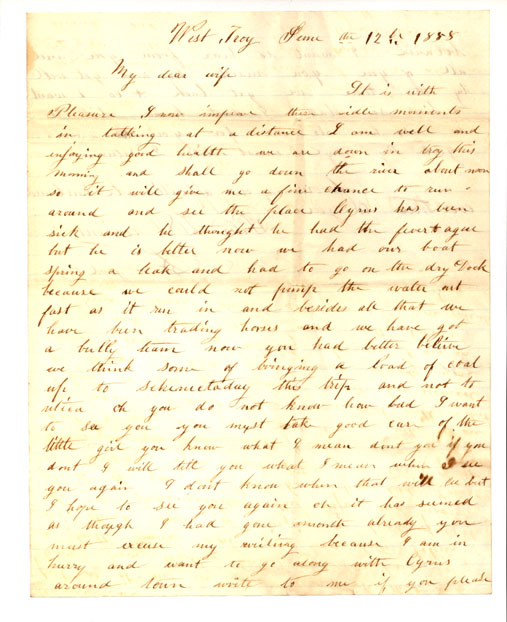 West Troy June the 12th 1888
My dear wife
It is with
Pleasure I now improve these idle moments
in talking at a distance I am well and
enjoying good health we are down in troy this
morning and shall go down the river about noon
so it will give me a fine chance to run
around and see the place Cyrus has been
sick and he thought he had the fever & ague
but he is better now we had our boat
spring a leak and had to go on the dry Dock
because we could not pump the water out
fast as it run in and besides all that we
have been trading horses and we have got
a bully team now you had better believe
we think some of bringing a load of coal
up to Sckenectaday this trip and not to
utica oh you do not know how bad I want
to see you you myst take good care of the
little girl you know what I mean dont you if you
dont I will tell you what I mean when I see
you again I don't know when that will be but
I hope to see you again oh it has seemed
as though I had gone amonth already you
must excuse my writing because I am in
hurry and want to go along with Cyrus
around town write to me if you please